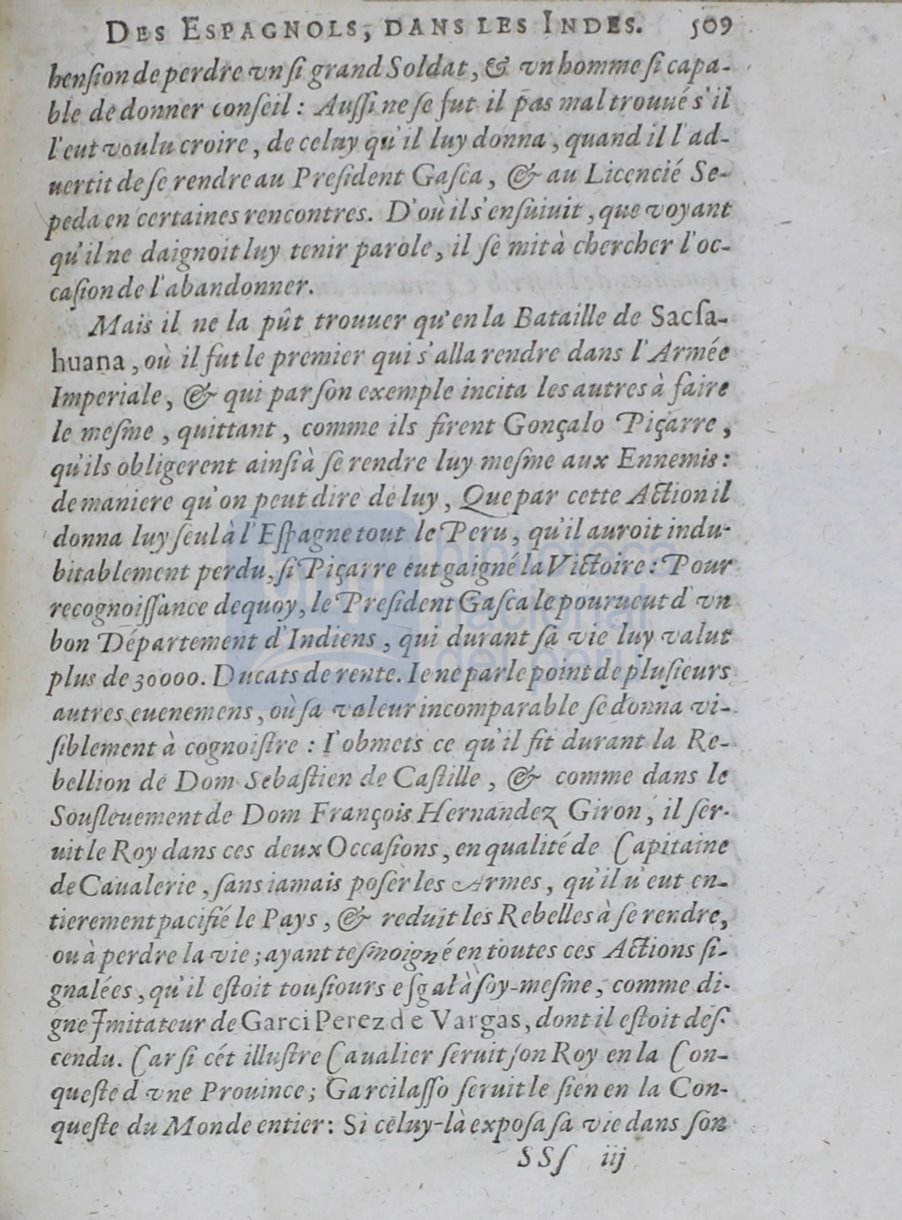 DES ESPAGNOLS, DANS LES INDES. 509
henſion de perdre vn ſi grand Soldat, & vn homme ſi capa-
ble de donner conſeil : Auſſi ne ſe fut il pas mal trouué s'il
l'eut voulu croire, de celuy qu'il luy donna, quand il l'ad-
uertit de ſe rendre au Preſident Gaſca, & au Licencié Se-
peda en certaines rencontres. D'où il s'enſuiuit, que voyant
qu'il ne daignoit luy tenir parole, il ſe mit à chercher l'oc-
caſion de l'abandonner.
Mais il ne la pût trouuer qu'en la Bataille de Sacſa-
huana, où il fut le premier qui s'alla rendre dans l'Armée
Imperiale, & qui par ſon exemple incita les autres à faire
le meſme, quittant, comme ils firent Gonçalo Piçarre,
qu'ils obligerent ainſi à ſe rendre luy meſme aux Ennemis :
de maniere qu'on peut dire de luy, Que par cette Action il
donna luy ſeul à l'Eſpagne tout le Peru, qu'il auroit indu-
bitablement perdu, ſi Piçarre eut gaigné la Victoire : Pour
recognoiſſance dequoy, le Preſident Gaſca le pourueut d'vn
bon Département d'Indiens, qui durant ſa vie luy valut
plus de 30000. Ducats de rente. Ie ne parle point de pluſieurs
autres euenemens, où ſa valeur incomparable ſe donna vi-
ſiblement à cognoiſtre : I'obmets ce qu'il fit durant la Re-
bellion de Dom Sebaſtien de Caſtille, & comme dans le
Souſleuement de Dom François Hernandez Giron, il ſer-
uit le Roy dans ces deux Occaſions, en qualité de Capitaine
de Caualerie, ſans iamais poſer les Armes, qu'il n'eut en-
tierement pacifié le Pays, & reduit les Rebelles à ſe rendre,
ou à perdre la vie ; ayant teſmoigné en toutes ces Actions ſi-
gnalées, qu'il eſtoit touſiours eſgal à ſoy-meſme, comme di-
gne Imitateur de Garci Perez de Vargas, dont il eſtoit deſ-
cendu. Car ſi cét illuſtre Caualier ſeruit ſon Roy en la Con-
queſte d'vne Prouince ; Garcilaſſo ſeruit le ſien en la Con-
queſte du Monde entier : Si celuy-là expoſa ſa vie dans ſon
SSſ iij
biblioteca
nacional
del perú